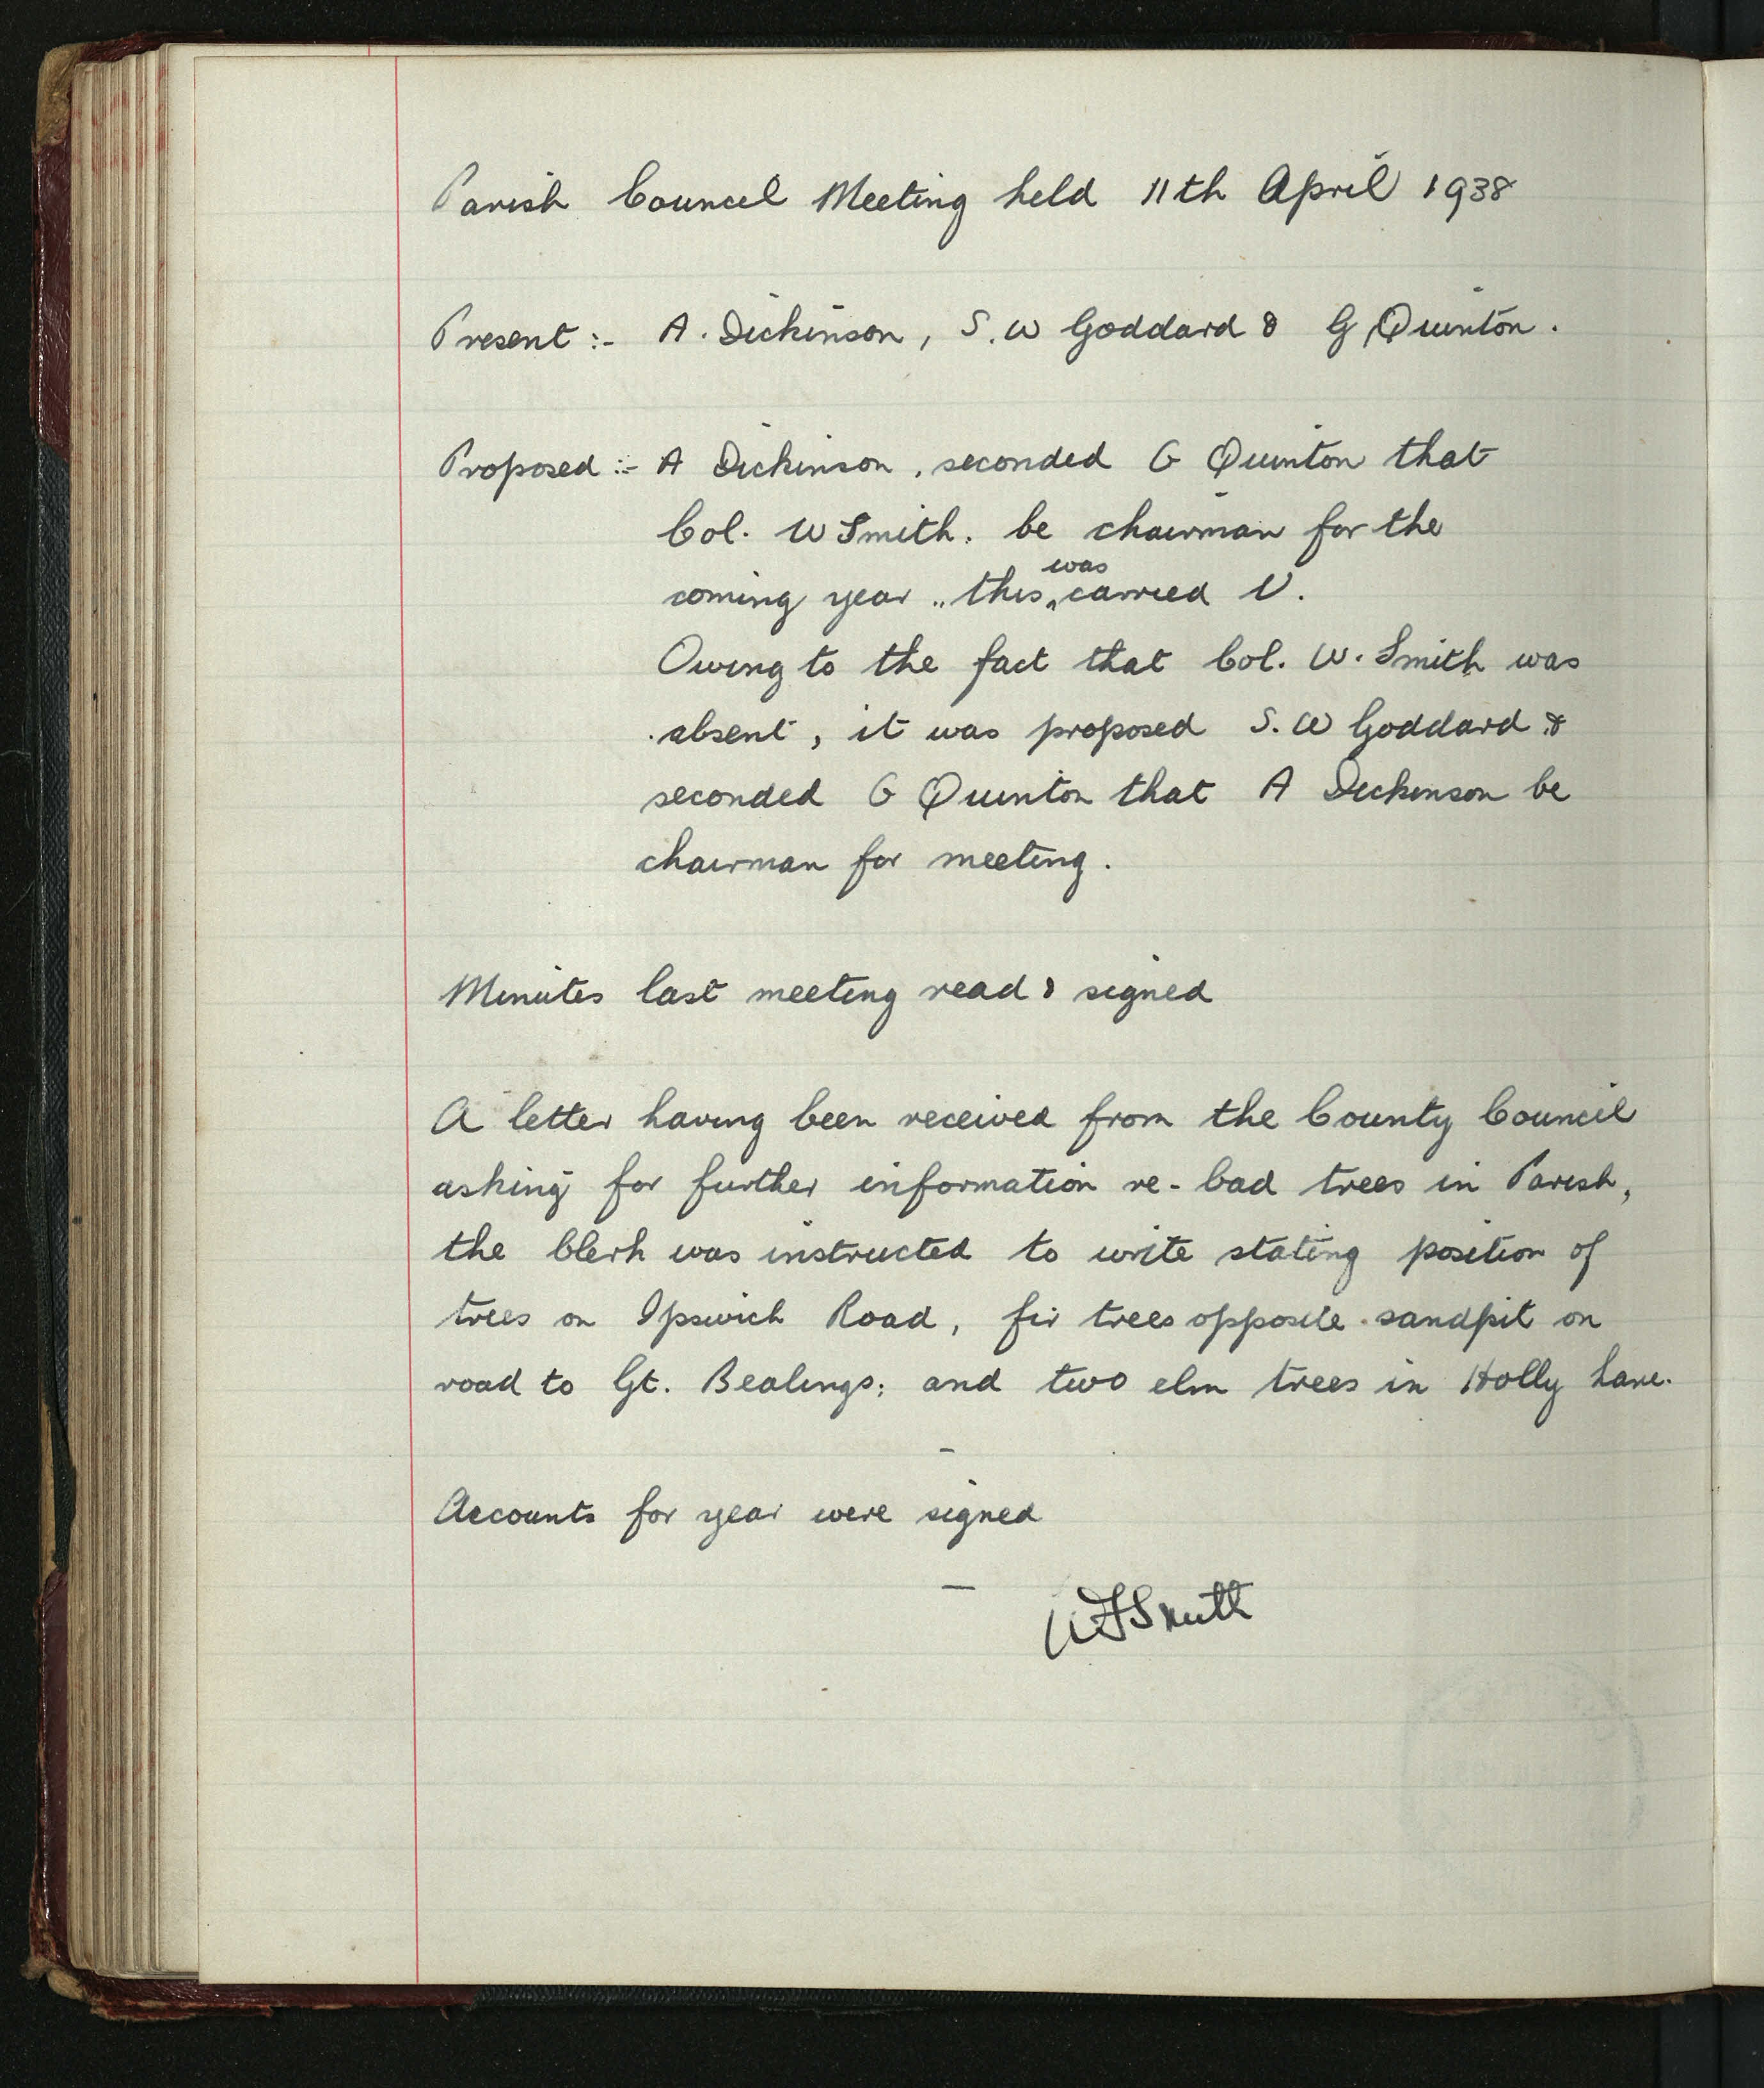 Parish Council Meeting held 11th April 1938
Present :- A. Dickinson, S. W Goddard & G Quinton.
Proposed :- A Dickinson, seconded G Quinton that
Col. W Smith. be chairman for the
coming year „ this was carried U.
Owing to the fact that Col. W. Smith was
absent, it was proposed S. W Goddard &
seconded G Quinton that A Dickinson be
chairman for meeting.
Minutes last meeting read & signed
A letter having been received from the County Council
asking for further information re- bad trees in Parish,
the Clerk was instructed to write stating position of
trees on Ipswich Road, fir trees opposite sandpit on
road to Gt. Bealings; and two elm trees in Holly Lane.
Accounts for year were signed
W F Smith